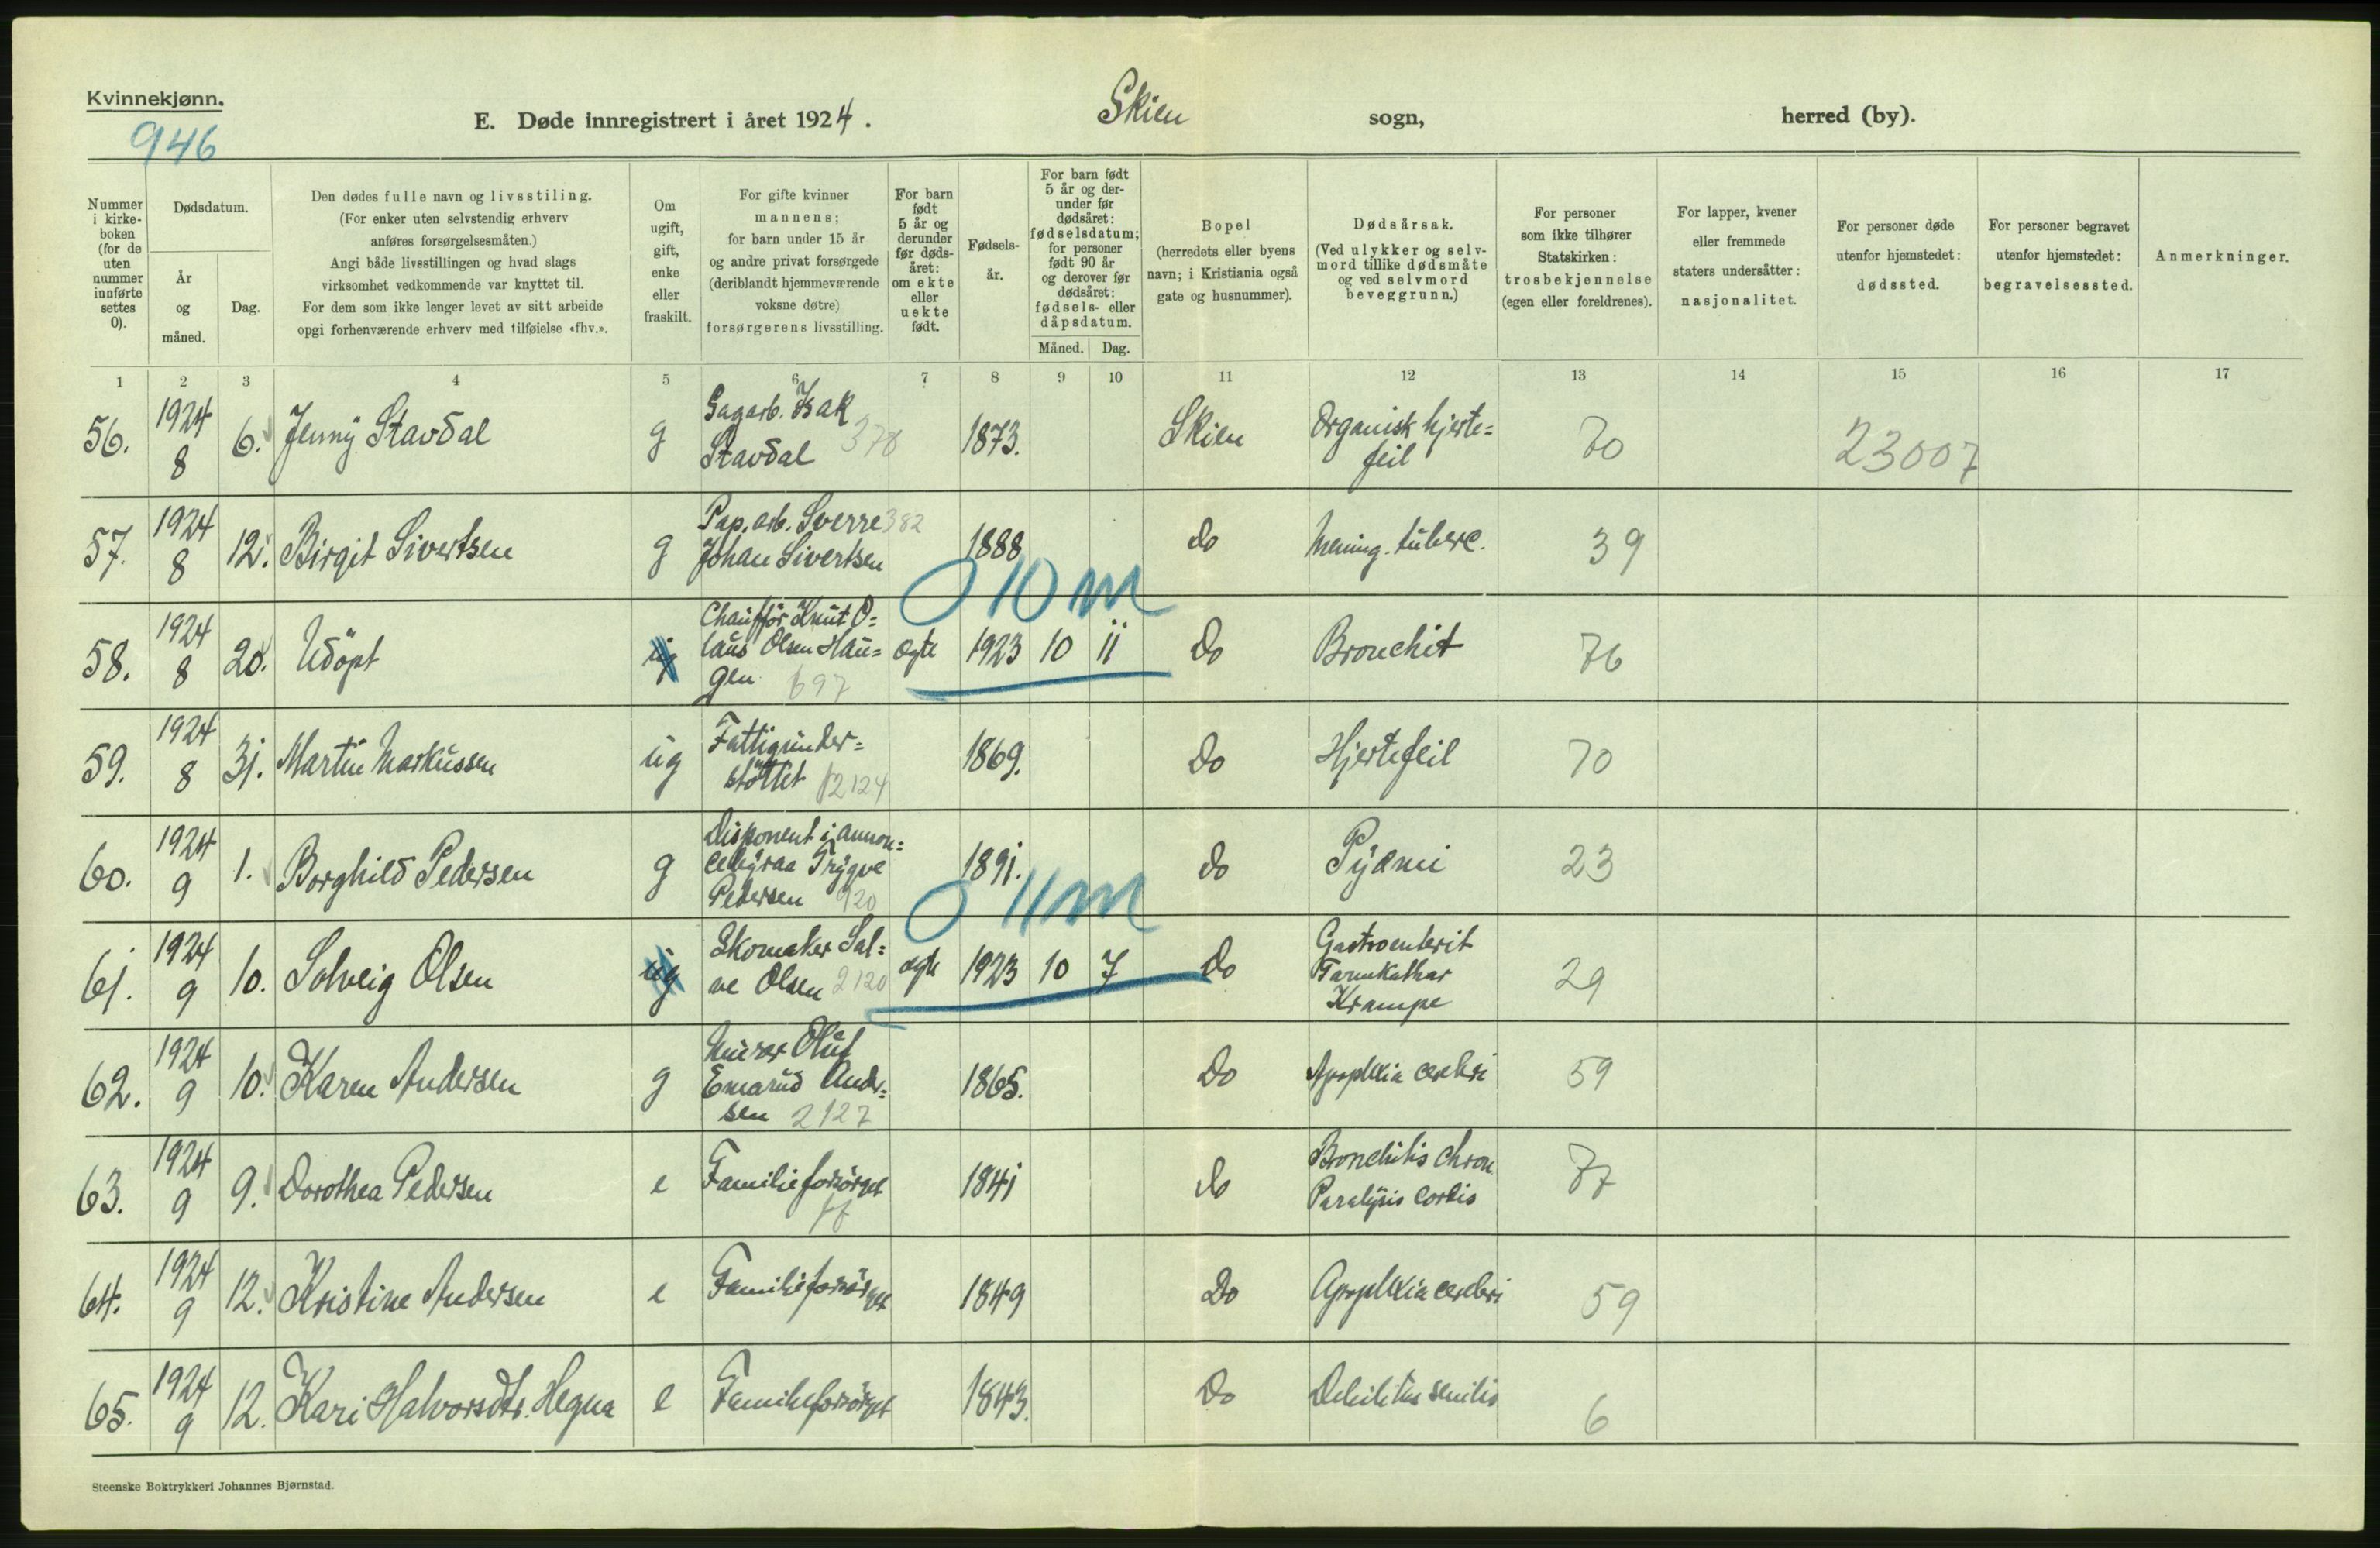 Kvinnekjønn.
946
E. Døde innregistrert i året 1924. Skien sogn, herred (by).
Nummer i kirkeboken (for de uten nummer innførte settes 0).
Dødsdatum.
År og måned.
Dag.
Den dødes fulle navn og livsstiling.
(For enker uten selvstendig erhverv
anføres forsørgelsesmåten.)
Angi både livsstillingen og hvad slags
virksomhet vedkommende var knyttet til.
For dem som ikke lenger levet av sitt arbeide
opgi forhenværende erhverv med tilføielse «fhv.».
Om
ugift,
gift,
enke
eller
fraskilt.
For gifte kvinner
mannens;
for barn under 15 år
og andre privat forsørgede
(deriblandt hjemmeværende
voksne døtre)
forsørgerens livsstilling.
For barn
født
5 år og
derunder
før døds-
året:
om ekte
eller
uekte
født.
Fødsels-
år.
For barn født
5 år og der-
under før
dødsåret:
fødselsdatum;
for personer
født 90 år
og derover før
dødsåret:
fødsels- eller
dåpsdatum.
Måned. Dag.
Bopel
(herredets eller byens
navn; i Kristiania også
gate og husnummer).
Dødsårsak.
(Ved ulykker og selv-
mord tillike dødsmåte
og ved selvmord
beveggrunn.)
For personer
som ikke tilhører
Statskirken:
trosbekjennelse
(egen eller foreldrenes).
For lapper, kvener
eller fremmede
staters undersåtter:
nasjonalitet.
For personer døde
utenfor hjemstedet:
dødssted.
For personer begravet
utenfor hjemstedet:
begravelsessted.
Anmerkninger.
1 2 3 4 5 6 7 8 9 10 11 12 13 14 15 16 17
56. 1924 8 6. Jenny Stavdal g Sagarb. Isak Stavdal 378 1873. Skien Organisk hjerte= feil 70 23007
57. 1924 8 12. Birgit Sivertsen g Pap. arb. Sverre 382 Johan Sivertsen 1888 do Mening. tuberc. 39
0 10 m
58. 1924 8 20. Udöpt ug Chauffør Knut O= laus Olsen Hau= gen 697 ægte 1923 10 11 Do Bronchit 76
59. 1924 8 31. Martin Markussen ug Fattigunder= støttet 2124 1869. Do Hjertefeil 70
60. 1924 9 1. Borghild Pedersen g Disponent i annon= cebyraa Trygve Pedersen 920 1891. do Pyæmi 23
0 11 m
61. 1924 9 10. Solveig Olsen ug Skomaker Sal= ve Olsen 2120 ægte 1923 10 7 Do Gastroenterit Tarmkathar Krampe 29
62. 1924 9 10. Karen Andersen g Murer Oluf Enarud Ander= sen 2127 1865. Do Apoplexia cerebri 59
63. 1924 9 9. Dorothea Pedersen e Familieforsörget 1841 do Bronchitis chron. Paralysis cordis 77
64. 1924 9 12. Kristine Andersen e Familieforsörget 1849 Do Apoplexia cerebri 59
65. 1924 9 12. Kari Halvorsdtr. Hegna e Familieforsörget 1843. Do Debilitas senilis 6
Steenske Boktrykkeri Johannes Bjørnstad.